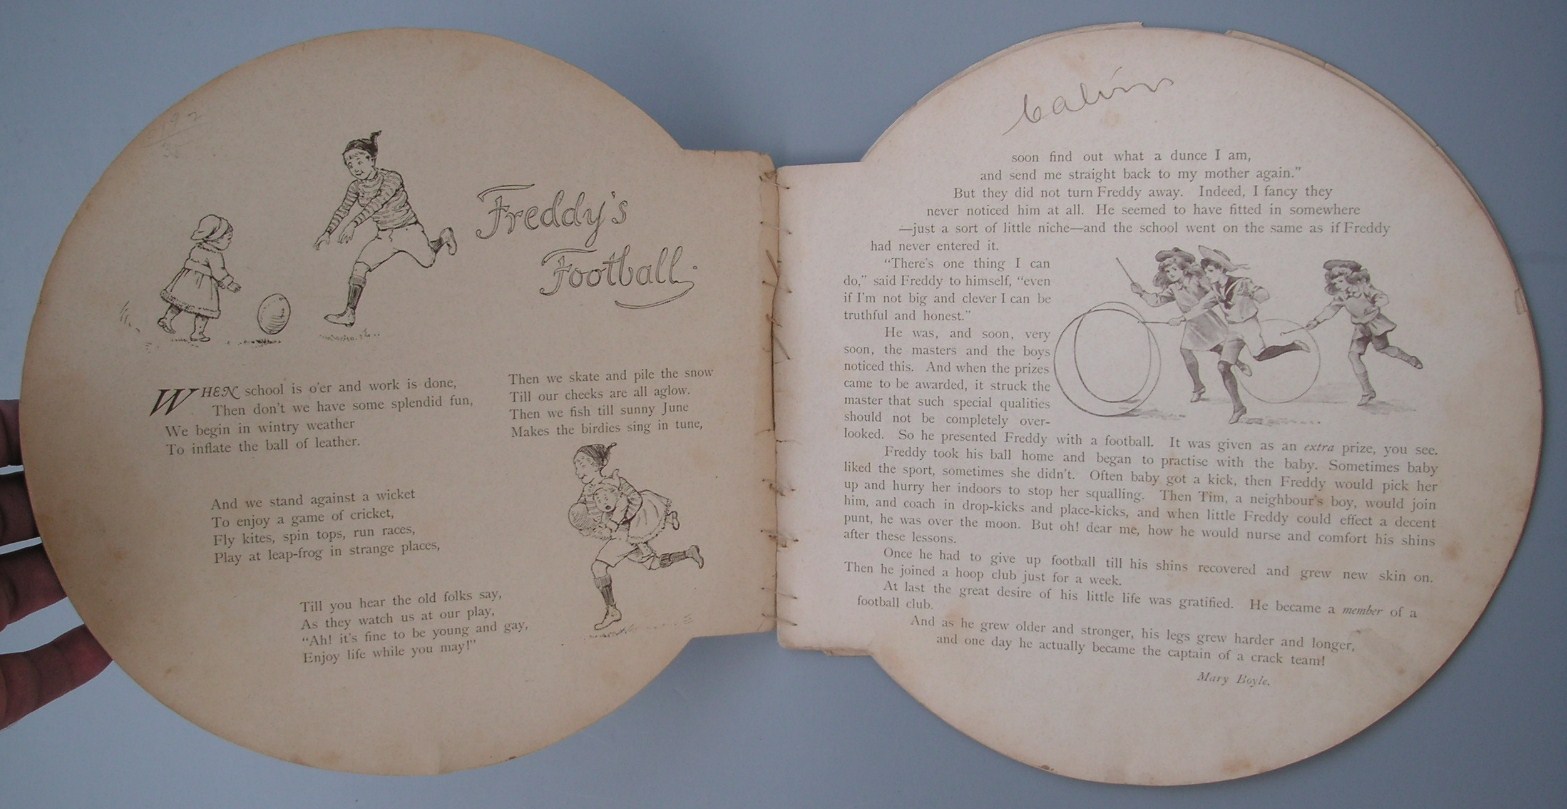 Freddy's
Football.
WHEN school is o'er and work is done,
Then don't we have some splendid fun,
We begin in wintry weather
To inflate the ball of leather.
And we stand against a wicket
To enjoy a game of cricket,
Fly kites, spin tops, run races,
Play at leap-frog in strange places,
Till you hear the old folks say,
As they watch us at our play,
"Ah! it's fine to be young and gay,
Enjoy life while you may!"
Then we skate and pile the snow
Till our cheeks are all aglow.
Then we fish till sunny June
Makes the birdies sing in tune,
Calvin
soon find out what a dunce I am,
and send me straight back to my mother again."
But they did not turn Freddy away. Indeed, I fancy they
never noticed him at all. He seemed to have fitted in somewhere
—just a sort of little niche—and the school went on the same as if Freddy
had never entered it.
"There's one thing I can
do," said Freddy to himself, "even
if I'm not big and clever I can be
truthful and honest."
He was, and soon, very
soon, the masters and the boys
noticed this. And when the prizes
came to be awarded, it struck the
master that such special qualities
should not be completely over-
looked. So he presented Freddy with a football. It was given as an extra prize, you see.
Freddy took his ball home and began to practise with the baby. Sometimes baby
liked the sport, sometimes she didn't. Often baby got a kick, then Freddy would pick her
up and hurry her indoors to stop her squalling. Then Tim, a neighbour's boy, would join
him, and coach in drop-kicks and place-kicks, and when little Freddy could effect a decent
punt, he was over the moon. But oh! dear me, how he would nurse and comfort his shins
after these lessons.
Once he had to give up football till his shins recovered and grew new skin on.
Then he joined a hoop club just for a week.
At last the great desire of his little life was gratified. He became a member of a
football club.
And as he grew older and stronger, his legs grew harder and longer,
and one day he actually became the captain of a crack team!
Mary Boyle.